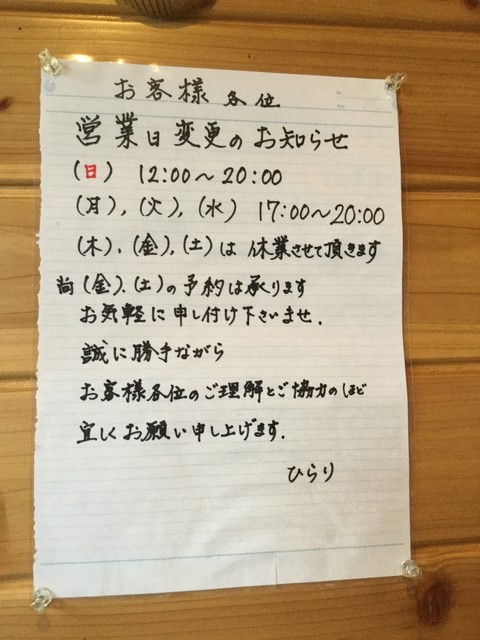 お客様 各位
営業日変更のお知らせ
(日) 12:00～20:00
(月),(火),(水) 17:00～20:00
(木),(金),(土)は 休業させて頂きます
尚(金),(土)の予約は承ります
お気軽に申し付け下さいませ.
誠に勝手ながら
お客様各位のご理解とご協力のほど
宜しくお願い申し上げます.
ひらり